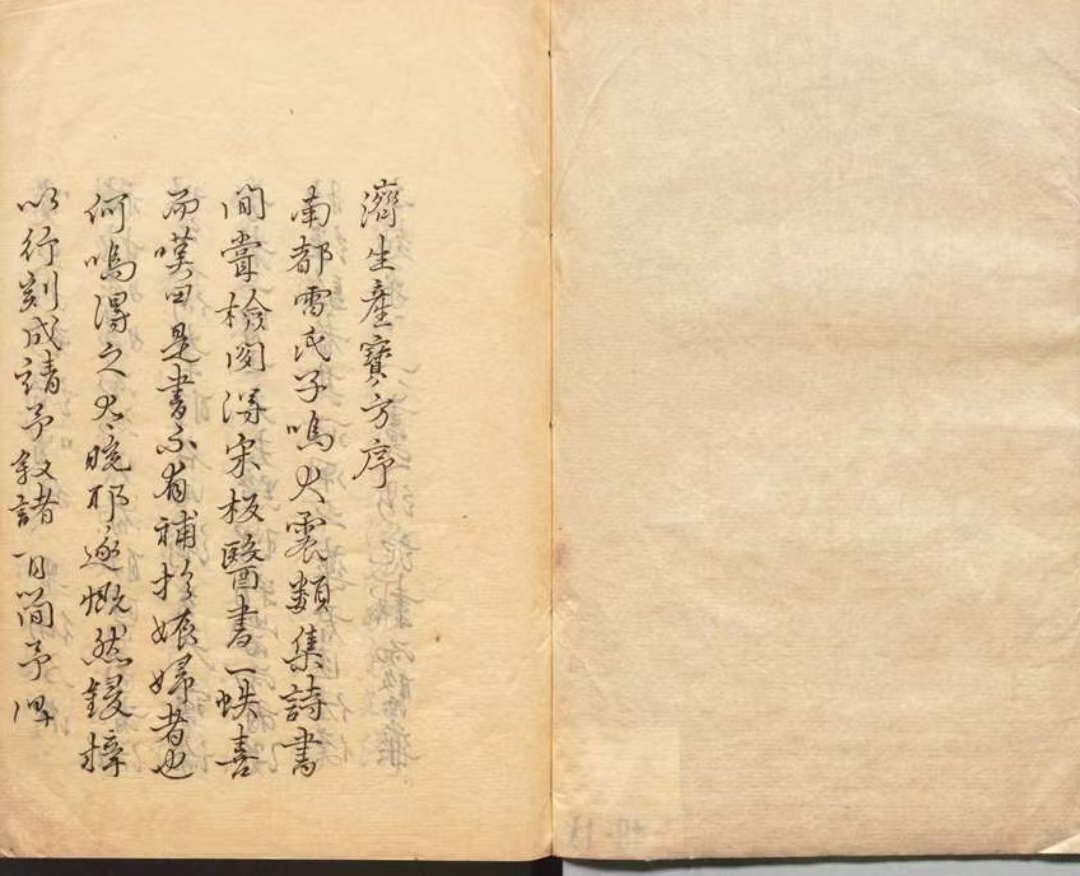 濟生產寶方序
南都雷氏子鳴大震類集詩書
間嘗檢閱得宋板醫書一帙喜
而嘆曰是書不有補於娠婦者也
何鳴得之大晚耶遂慨然鋟梓
以行刻成請予敘諸首簡予俾